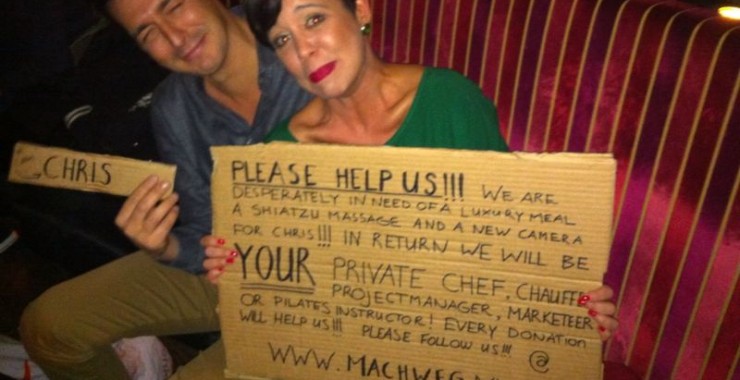 CHRIS
PLEASE HELP US!!! WE ARE
DESPERATELY IN NEED OF A LUXURY MEAL
A SHIATZU MASSAGE AND A NEW CAMERA
FOR CHRIS!!! IN RETURN WE WILL BE
YOUR PRIVATE CHEF, CHAUFFE
PROJECTMANAGER, MARKETEER
OR PILATES INSTRUCTOR! EVERY DONATION
WILL HELP US!!! PLEASE FOLLOW US!!! @
WWW.MACHWEG.